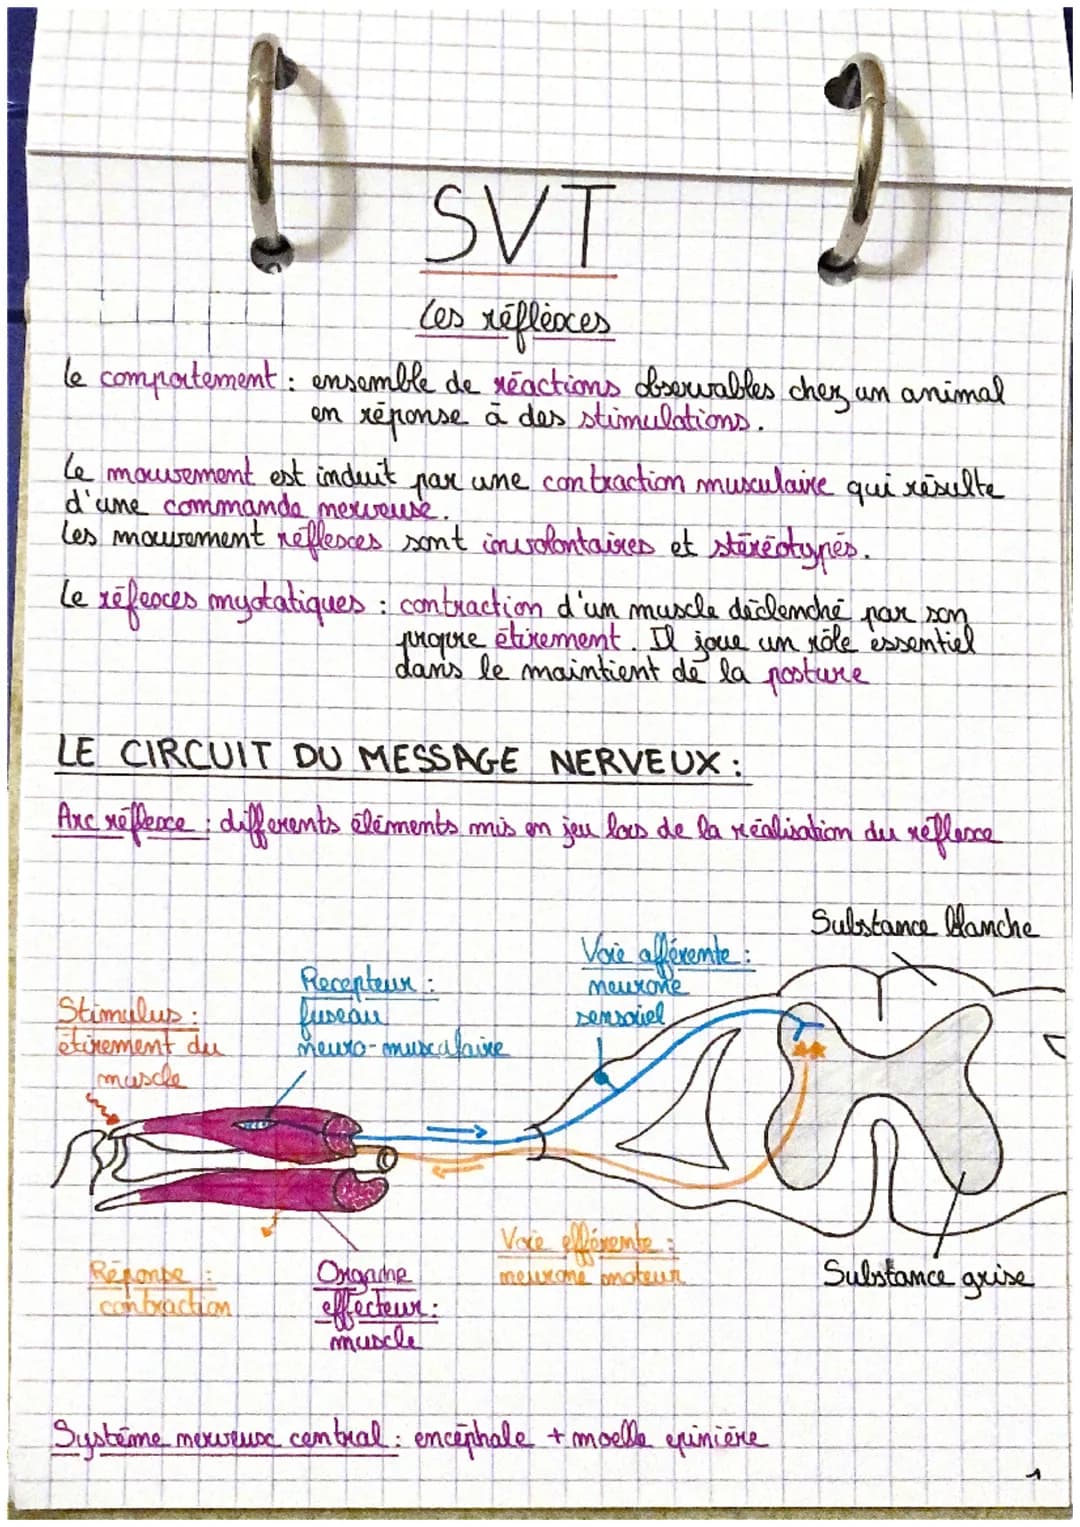 SVT
Les réflexes
Le comportement : ensemble de réactions observables chez un animal
en réponse à des stimulations.
Le mouvement est induit par une contraction musculaire qui résulte
d'une commande nerveuse.
Les mouvement réflexes sont involontaires et stéréotypés.
Le réfexes myotatiques : contraction d'un muscle déclenché par son
propre étirement. Il joue un rôle essentiel
dans le maintient de la posture
LE CIRCUIT DU MESSAGE NERVEUX :
Arc réflexe : differents éléments mis en jeu lors de la réalisation du réflexe
Substance blanche
Voie afférente :
neurone
sensoriel
Recepteur :
fuseau
neuro-musculaire
Stimulus :
étirement du
muscle
Voie efférente :
neurone moteur
Réponse :
contraction
Organe
effecteur :
muscle
Substance grise
Système nerveux central : encéphale + moelle épinière
1